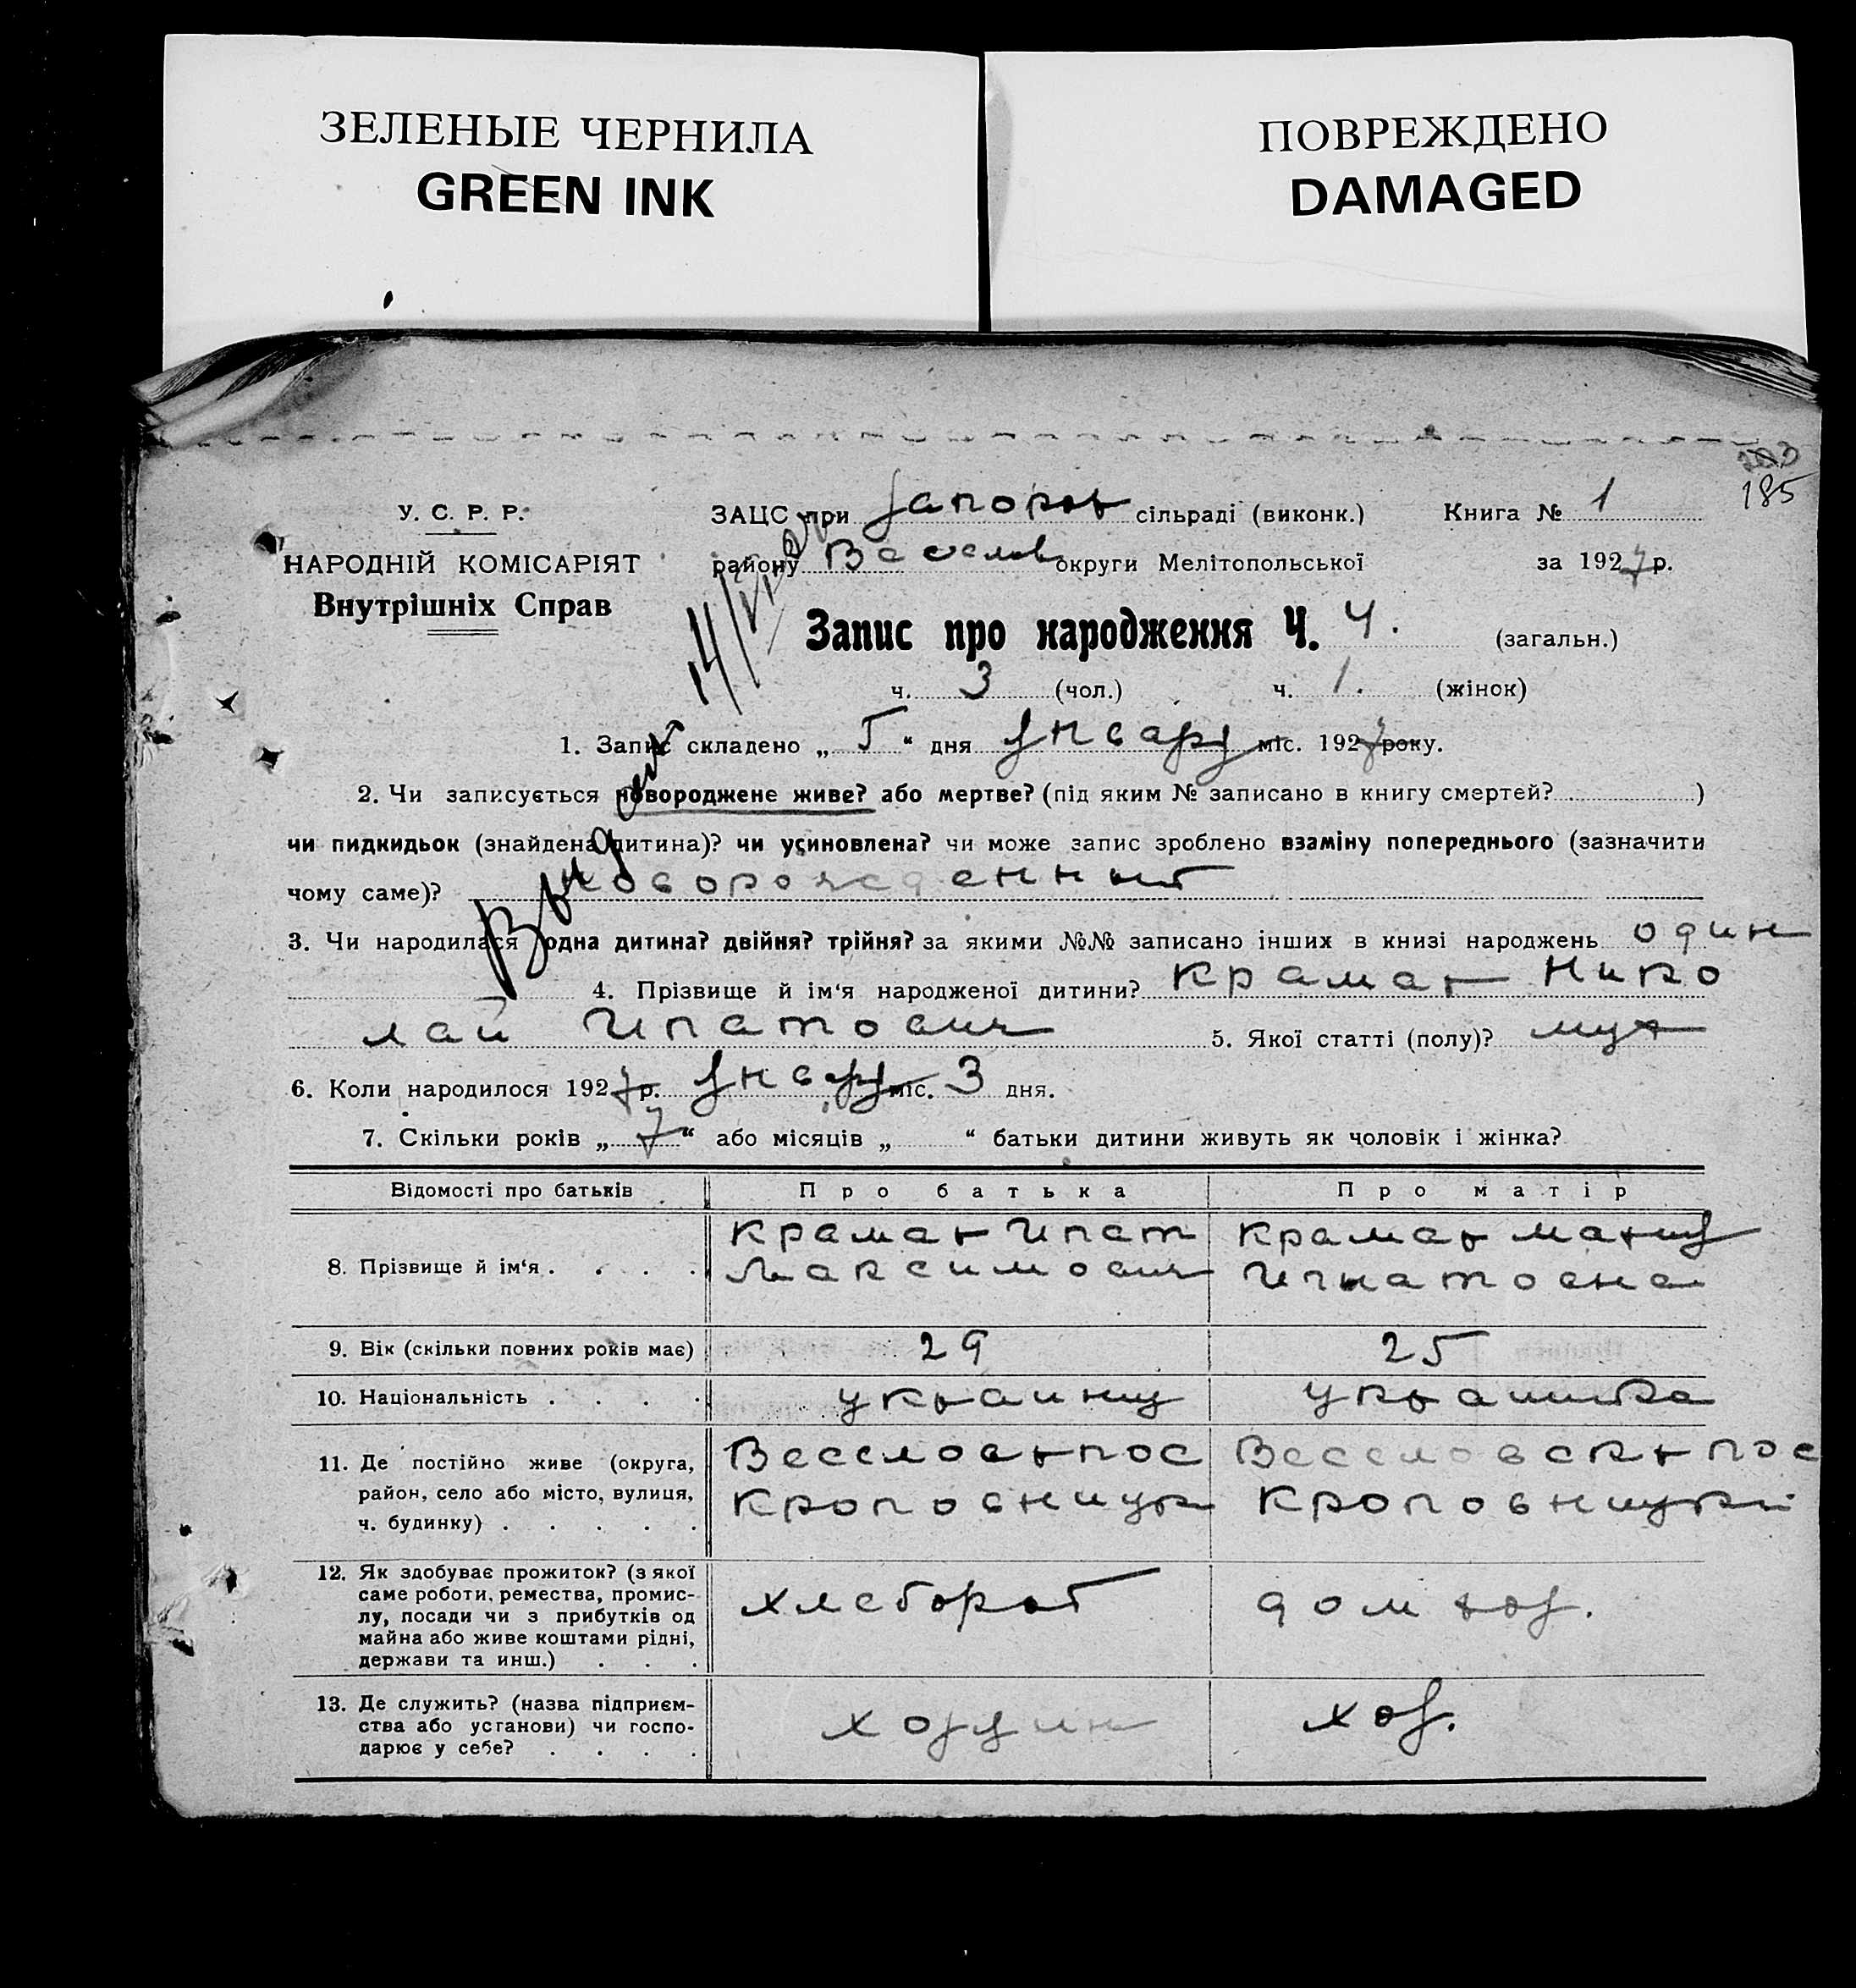 ЗЕЛЕНЫЕ ЧЕРНИЛА
GREEN INK
ПОВРЕЖДЕНО
DAMAGED
185
У. С. Р. Р.
НАРОДНІЙ КОМІСАРІЯТ
Внутрішніх Справ
ЗАЦС при Запорож сільраді (виконк.) Книга № 1
району Веселов округи Мелітопольської за 1927 р.
Запис про народження Ч. 4. (загальн.)
ч. 3 (чол.) ч. 1. (жінок)
1. Запис складено „ 5 “ дня Января міс. 1927 року.
2. Чи записується новороджене живе? або мертве? (під яким № записано в книгу смертей? )
чи пидкидьок (знайдена дитина)? чи усиновлена? чи може запис зроблено взаміну попереднього (зазначити
чому саме)? новорожденный
3. Чи народилася одна дитина? двійня? трійня? за якими №№ записано інших в книзі народжень один
4. Прізвище й ім‘я народженої дитини? Крамар Нико
лай Ипатович 5. Якої статті (полу)? муж
6. Коли народилося 1927 р. Января міс. 3 дня.
7. Скільки років „ 7 “ або місяців „ “ батьки дитини живуть як чоловік і жінка?
Відомості про батьків Про батька Про матір
8. Прізвище й ім‘я . . . . Крамар Ипат Крамар
Максимович Игнатовна
9. Вік (скільки повних років має) 29 25
10. Національність . . . . украинц украинка
11. Де постійно живе (округа, район, село або місто, вулиця, ч. будинку) . . . . . Веселов пос Веселовск пос
Кроповницк Кроповницкий
12. Як здобуває прожиток? (з якої саме роботи, ремества, промислу, посади чи з прибутків од майна або живе коштами рідні, держави та инш.) . . . хлебороб дом хоз.
13. Де служить? (назва підприємства або установи) чи господарює у себе? . . . . хозяин хоз.